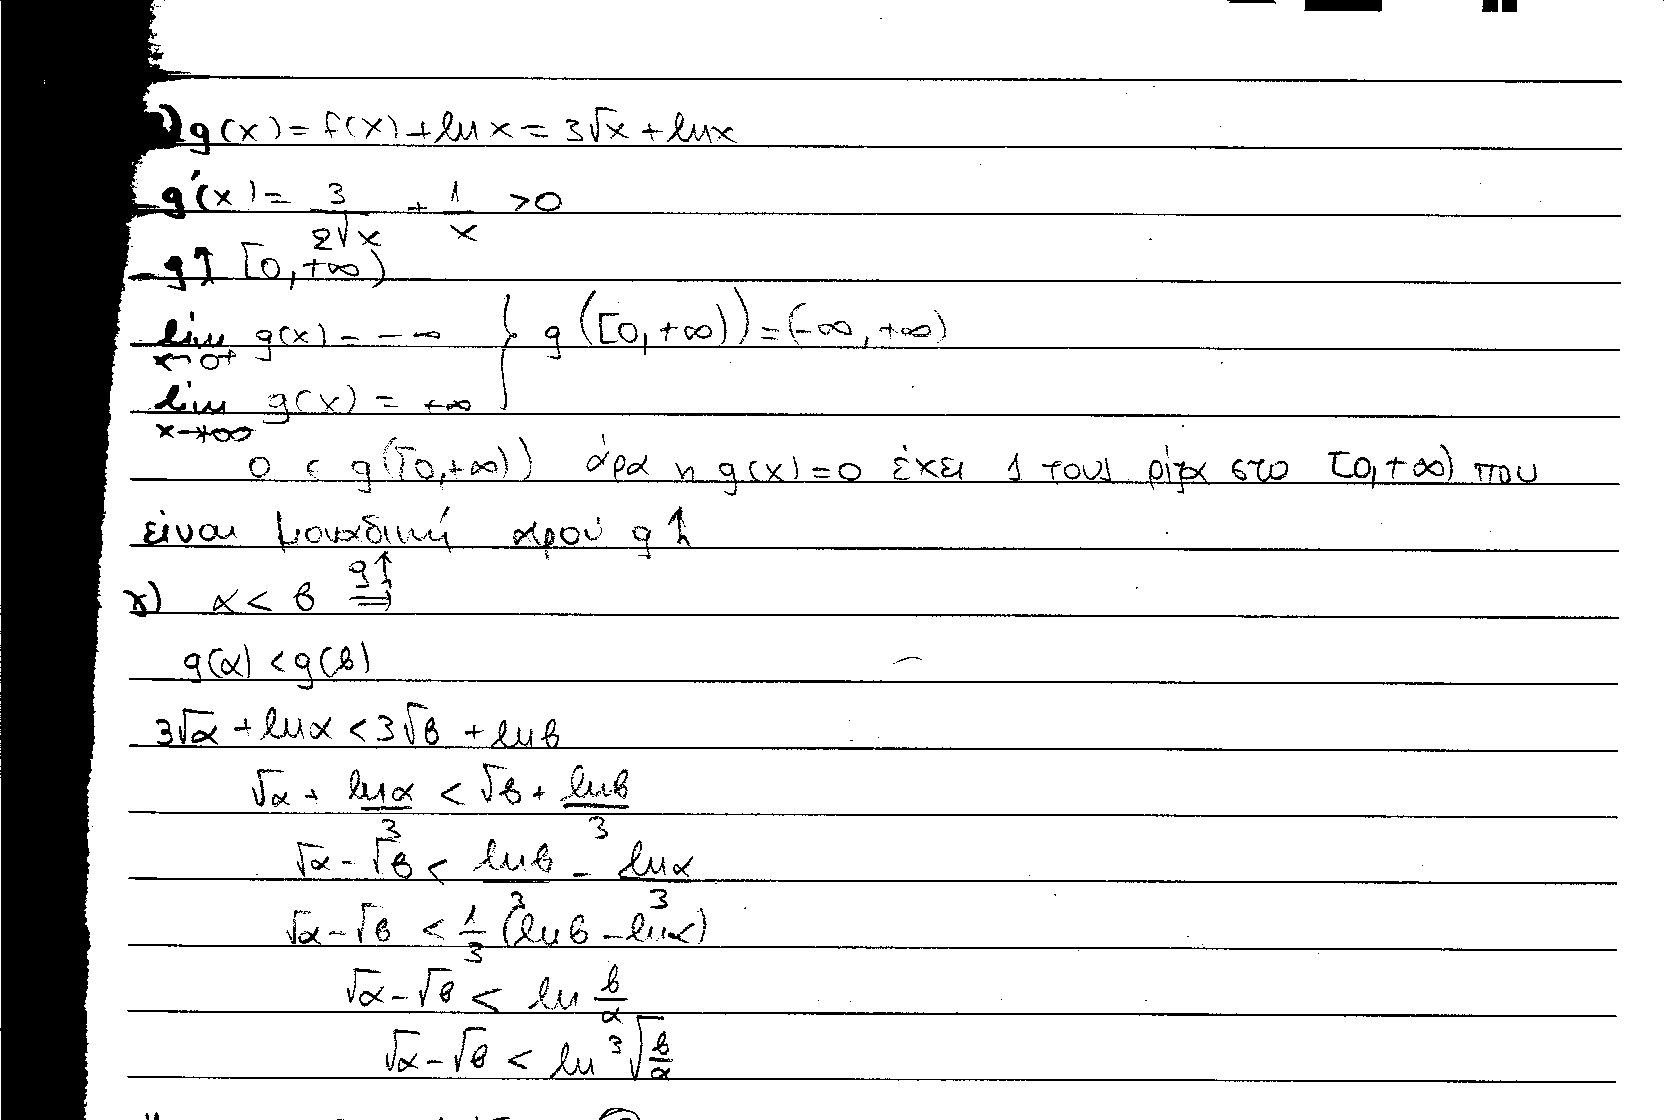 g(x) = f(x) + ln x = 3√x + ln x
g'(x) = 3/(2√x) + 1/x > 0
g↑ [0, +∞)
lim x→0+ g(x) = -∞ } g([0, +∞)) = (-∞, +∞)
lim x→+∞ g(x) = +∞
0 ∈ g([0, +∞)) άρα η g(x) = 0 έχει 1 τουλ ρίζα στο [0, +∞) που
είναι μοναδική αφού g↑
γ) α < β g↑ ⟹
g(α) < g(β)
3√α + ln α < 3√β + ln β
√α + ln α/3 < √β + ln β/3
√α - √β < ln β/3 - ln α/3
√α - √β < 1/3 (ln β - ln α)
√α - √β < ln β/α
√α - √β < ln ³√(β/α)